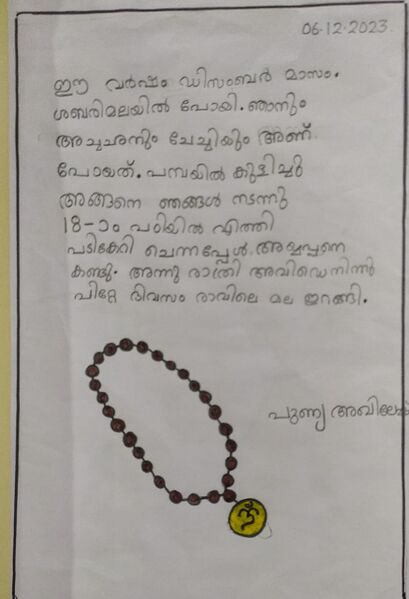 06-12-2023
ഈ വർഷം ഡിസംബർ മാസം.
ശബരിമലയിൽ പോയി. ഞാനും
അച്ചനും ചേച്ചിയും അണ്
പോയത്. പമ്പയിൽ കുളിച്ചു
അങ്ങനെ ഞങ്ങൾ നടന്നു
18-ാം പടിയിൽ എത്തി
പടികേറി ചെന്നപ്പേൾ. അയ്യപ്പനെ
കണ്ടു. അന്നു രാത്രി അവിഡെനിന്ന്
പിറ്റേ ദിവസം രാവിലെ മല ഇറങ്ങി.
പുണ്യ
ॐ